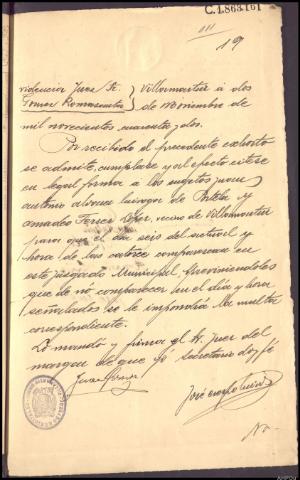 C.1.863.161
19
Providencia Juez Sr. Villamartín a dos
Gomez Romasanta de noviembre de
mil novecientos cuarenta y dos.
Por recibido el precedente exhorto
se admite, cumplase y al efecto citese
en legal forma a los sujetos Juan
Antonio Alvarez de Portela y
Amadeo Ferrer López, vecino de Villamartín
para que el dia seis del actual y
hora de las catorce comparezcan en
este juzgado Municipal, previniendoles
que de no comparecer en el dia y hora
señalados se le impondrá la multa
correspondiente.
Lo mandó y firma el Sr. Juez del
margen de que yo Secretario doy fé
Juan Gomez
José